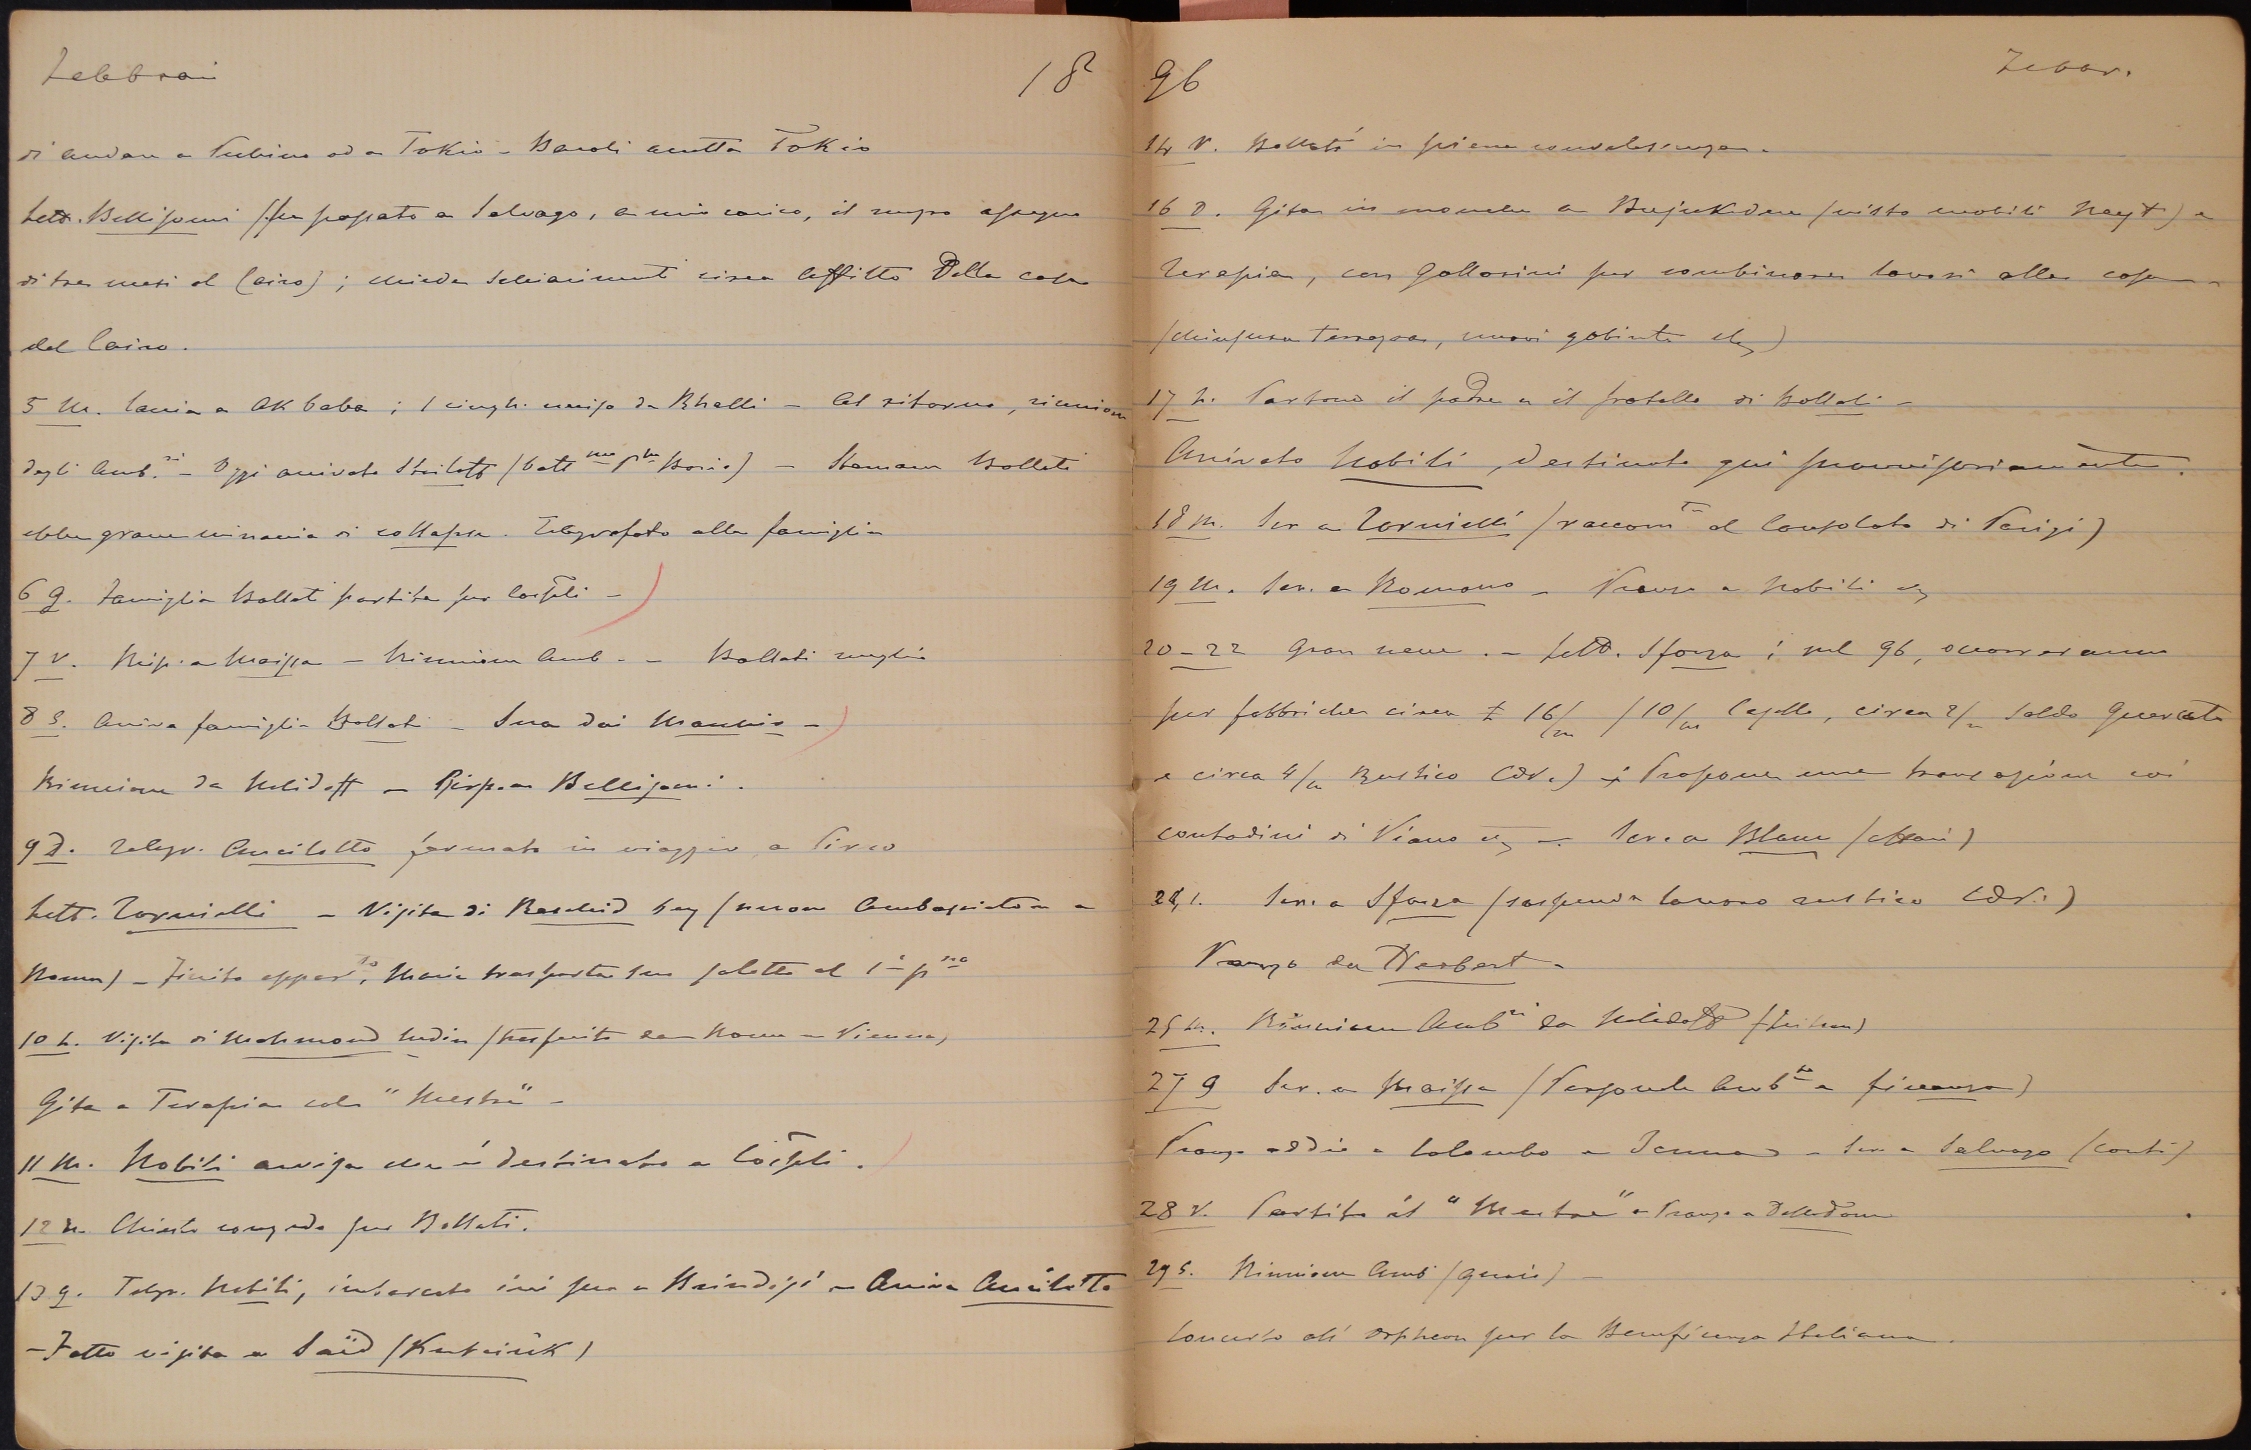 Febbraio
18
di andare a Pechino od a Tokio – Baroli accetta Tokio
Lett. Bellisomi (fu pagato a Salvago, a mio carico, il mezzo assegno
di tre mesi al Cairo) ; chiede schiarimenti circa affitto della casa
del Cairo.
5 M. Caccia a Akbaba ; 1 cingh. ucciso da Rhalli – Al ritorno, riunione
degli Amb.ri – Oggi arrivato (batt Boris) – Stamane Bollati
ebbe grave minaccia di collasso. Telegrafato alla famiglia
6 G. Famiglia Bollati partita per Cospoli –
7 V. Risp. a Maissa – Riunione Amb. – Bollati meglio
8 S. Arriva famiglia Bollati – Sera dai –
Riunione da Nelidoff – Risp. a Bellisomi.
9 D. Telegr. Ancilotto fermato in viaggio a Pireo
Lett. Tornielli – Visita di Reschid bey (nuovo Ambasciatore a
Roma) – Finito appar.to, Maria trasporta suo salotto al 1° p.no
10 L. Visita di Mahmoud Nedim (trasferito da Roma a Vienna)
Gita a Terapia colla "Mestre" –
11 M. Nobili avvisa che è destinato a Cospoli.
12 M. Chiesto congedo per Bollati.
13 G. Telegr. Nobili, imbarcato ieri sera a Brindisi – Arriva Ancilotto
– Fatto visita a Saïd (Kutciuk)
96
Febbr.
14 V. Bollati in piena convalescenza.
16 D. Gita in mouche a Bujukdere (visto mobili) e
Terapia, con Gallarini per combinare lavori alla casa –
(chiusura terrazza, nuovi gabinetti etc)
17 L. Partono il padre e il fratello di Bollati –
Arrivato Nobili, destinato qui provvisoriamente.
18 M. Scr. a Tornielli (raccom.ta al Consolato di Parigi)
19 M. Scr. a Romano – Pranzo a Nobili etc
20–22 Gran neve. – Lett. Sforza ; nel 96, occorreranno
per fabbriche circa £ 16/m (10/m Capello, circa 2/m saldo Querceta
e circa 4/m Rustico CdV.) ; Propone una transazione coi
contadini di Viano etc –. Scr. a Blanc (affari)
Scr. a Sforza (sospenda lavoro rustico CdV.)
Pranzo da Herbert –
25 M. Riunione Amb.ri da Nelidoff (Zeitun)
27 G Scr. a Maissa (Personale Amb.ta e finanza)
Pranzo addio a Colombo e – Scr. a Salvago (conti)
28 V. Partito il "Mestre" e Pranzo a
29 S. Riunione Amb.
Concerto all' Orpheon per la Beneficenza Italiana.